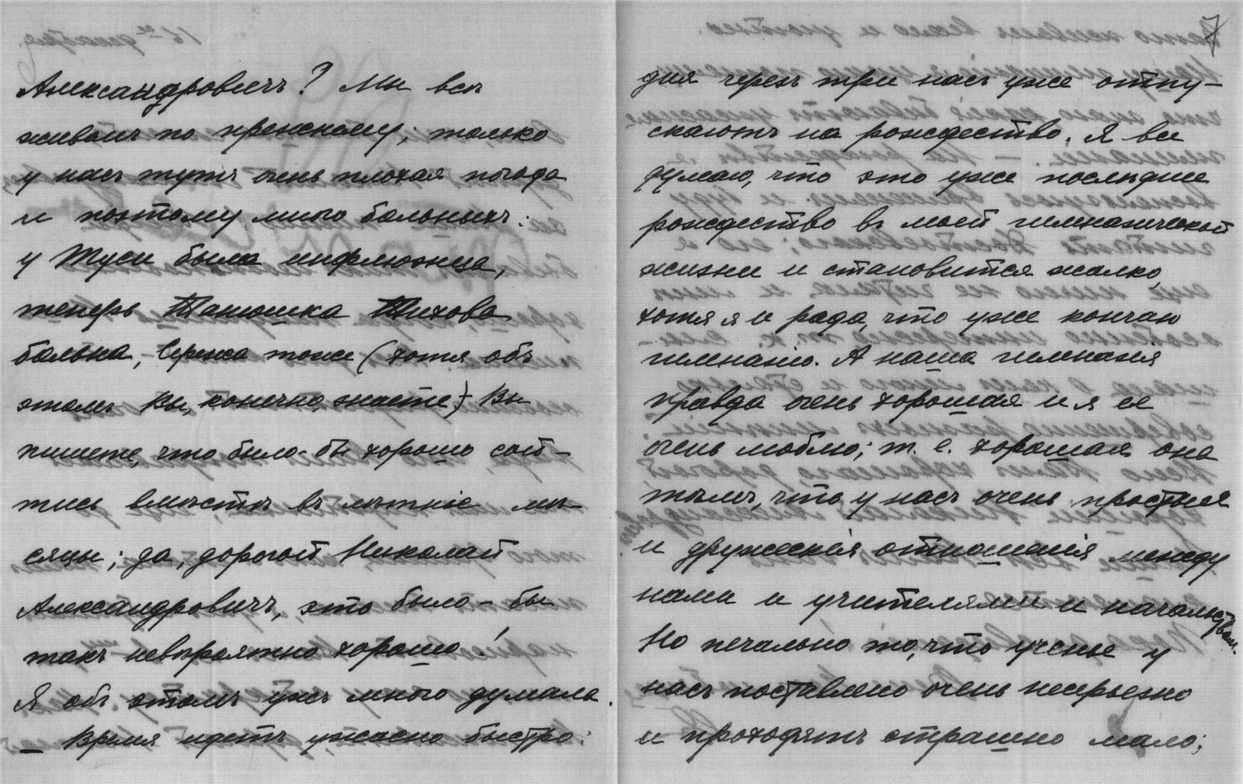 Александровичъ? Мы все
живемъ по прежнему; только
у насъ тутъ очень плохая погода
и поэтому много больныхъ:
у Туси была инфлюэнца,
теперь Танюшка Тихова
больна, Сережа тоже (хотя объ
этомъ Вы, конечно, знаете). Вы
пишете, что было-бы хорошо сой-
тись вмѣстѣ въ лѣтніе мѣ-
сяцы; да, дорогой Николай
Александровичъ, это было-бы
такъ невѣроятно хорошо!
Я объ этомъ ужъ много думала.
— Время идетъ ужасно быстро:
7
дня черезъ три насъ уже отпу-
скаютъ на рождество. Я все
думаю, что это уже послѣднее
рождество въ моей гимназической
жизни и становится жалко,
хотя я и рада, что уже кончаю
гимназію. А наша гимназія
правда очень хорошая и я ее
очень люблю; т. е. хорошая она
тѣмъ, что у насъ очень простыя
и дружескія отношенія между
нами и учителями и начальствомъ.
Но печально то, что ученье у
насъ поставлено очень несерьезно
и проходятъ страшно мало;